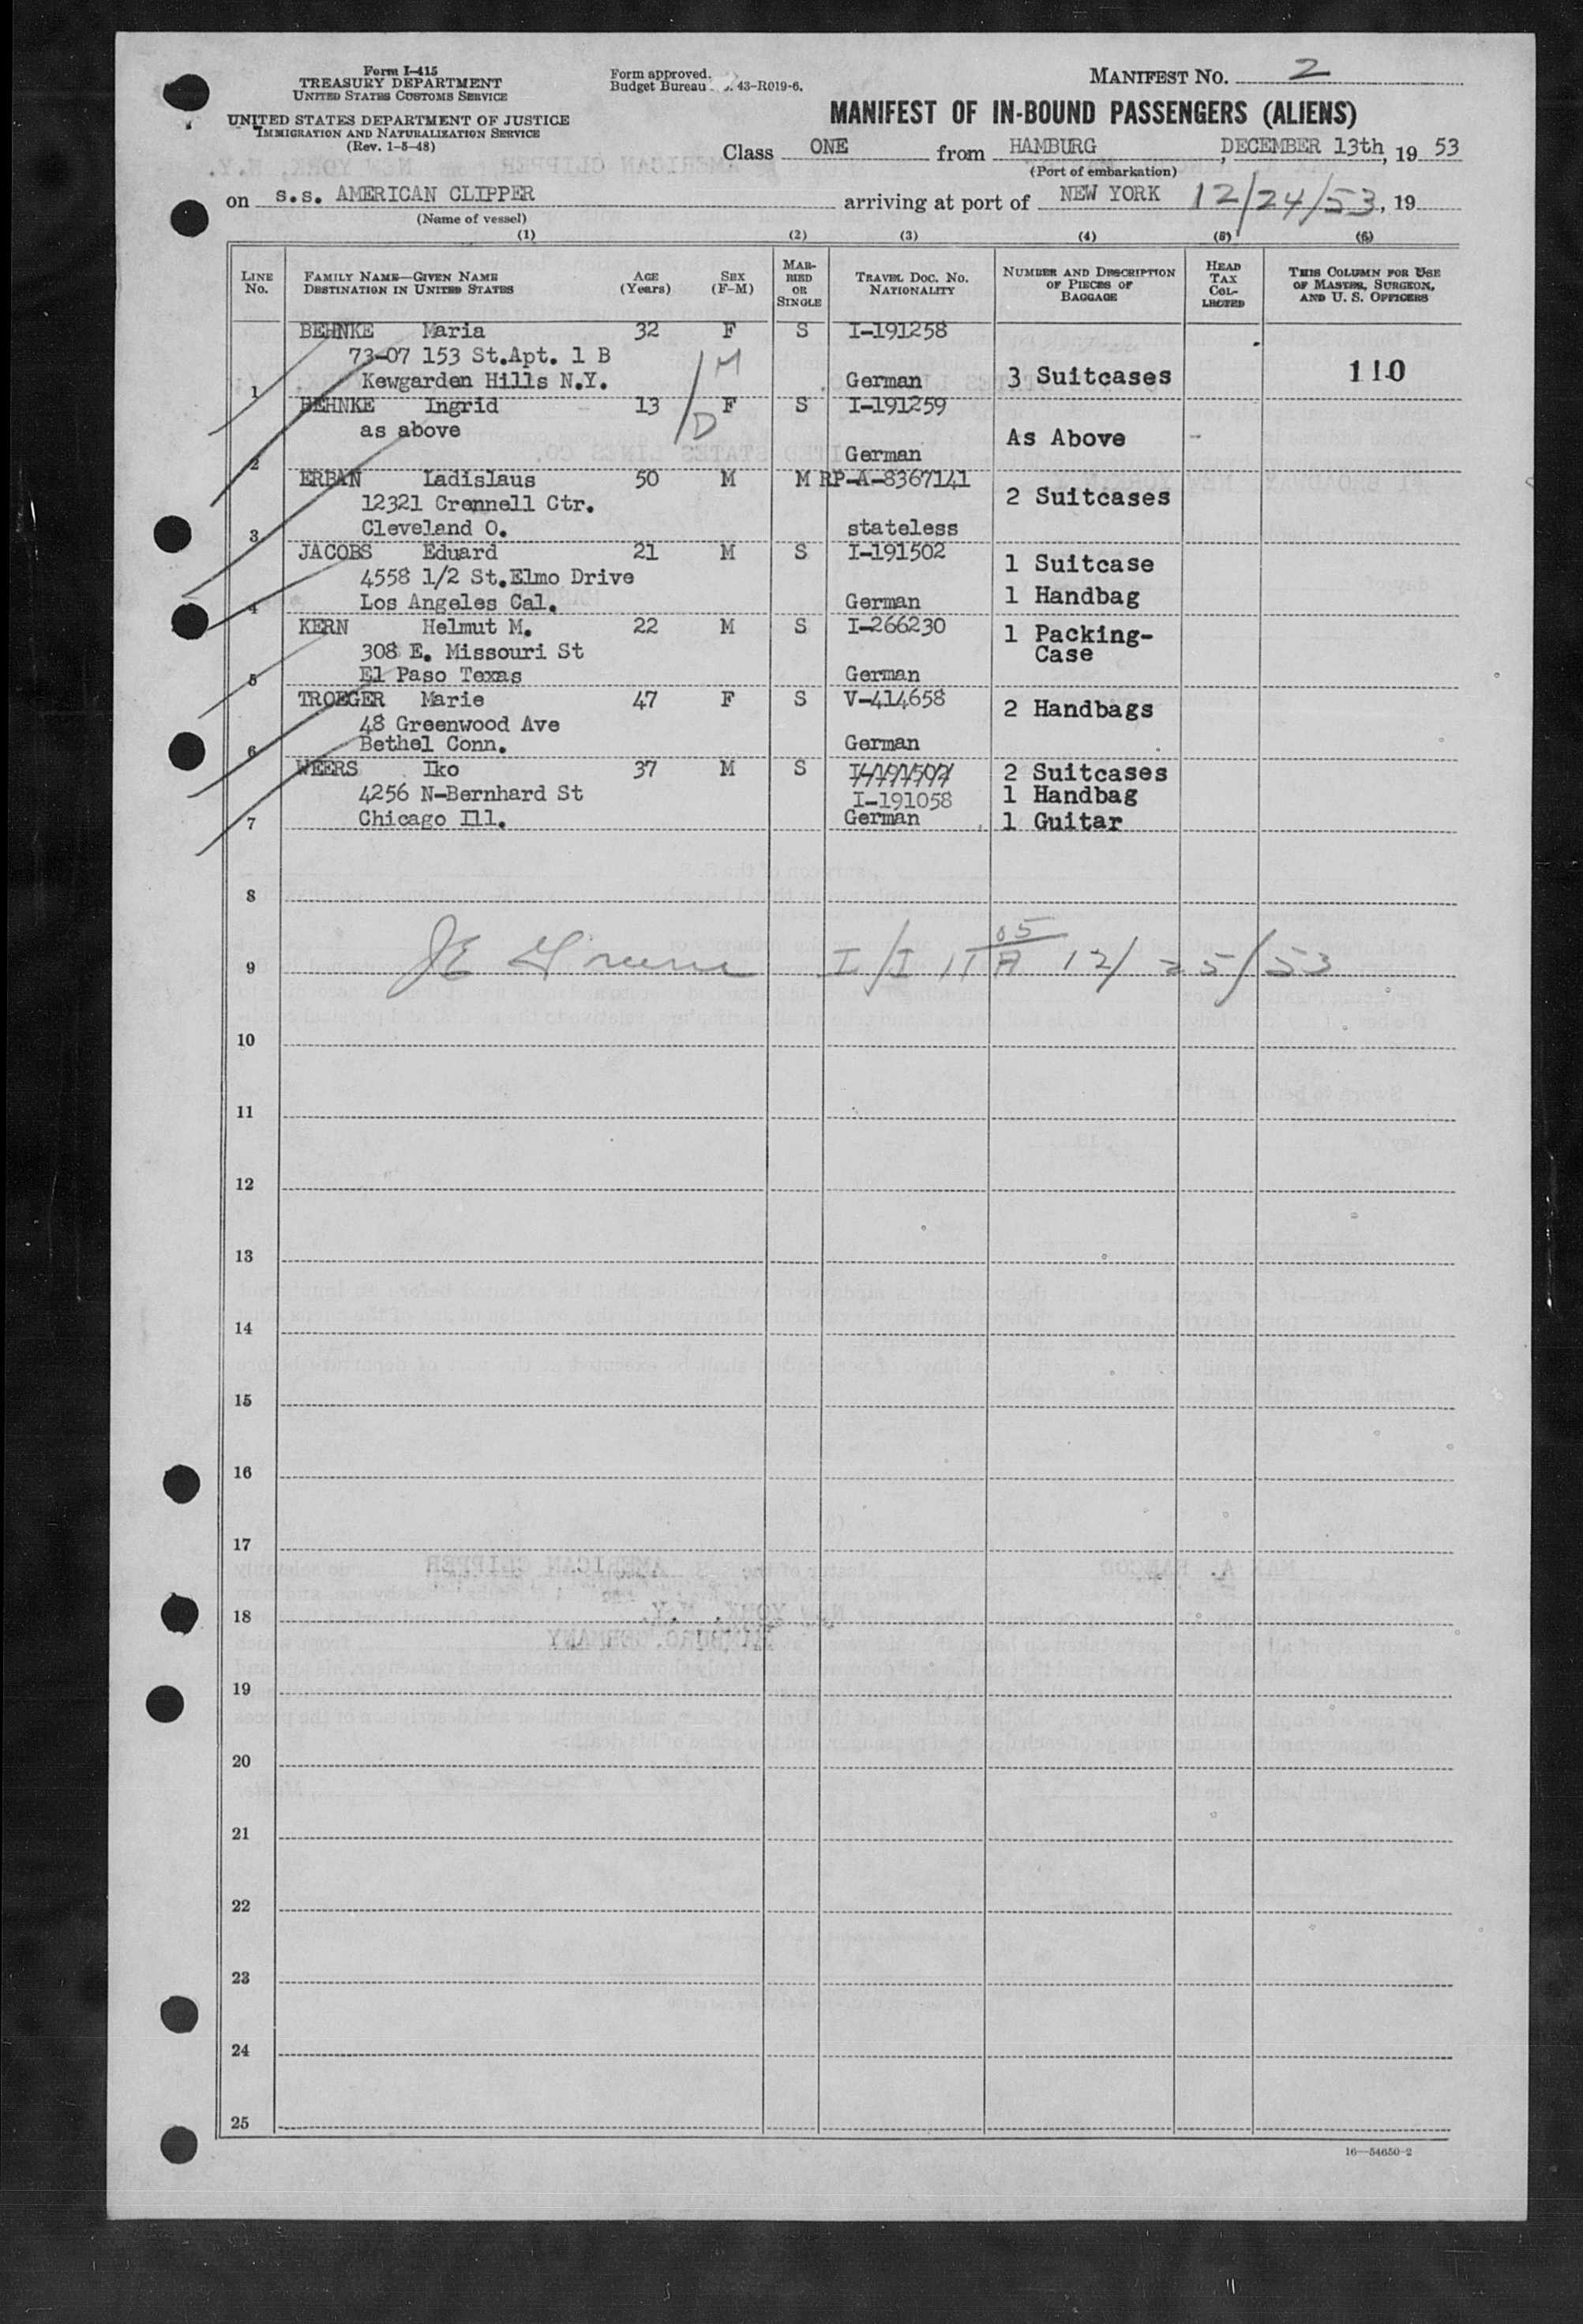 Form I-415
TREASURY DEPARTMENT
UNITED STATES CUSTOMS SERVICE
UNITED STATES DEPARTMENT OF JUSTICE
IMMIGRATION AND NATURALIZATION SERVICE
(Rev. 1-5-48)
Form approved.
Budget Bureau 43-R019-6.
MANIFEST NO. 2
MANIFEST OF IN-BOUND PASSENGERS (ALIENS)
Class ONE from HAMBURG, DECEMBER 13th, 19 53
(Port of embarkation)
on s.s. AMERICAN CLIPPER arriving at port of NEW YORK 12/24/53, 19
(Name of vessel)
(1) (2) (3) (4) (5) (6)
LINE NO.
FAMILY NAME—GIVEN NAME
DESTINATION IN UNITED STATES
AGE (Years)
SEX (F-M)
MARRIED OR SINGLE
TRAVEL DOC. NO.
NATIONALITY
NUMBER AND DESCRIPTION OF PIECES OF BAGGAGE
HEAD TAX COLLECTED
THIS COLUMN FOR USE OF MASTER, SURGEON, AND U. S. OFFICERS
BEHNKE Maria 32 F S I-191258
73-07 153 St.Apt. 1 B M
1 Kewgarden Hills N.Y. German 3 Suitcases 110
BEHNKE Ingrid 13 F S I-191259
as above D As Above -
2 German
ERBAN Ladislaus 50 M M RP-A-8367141
12321 Crennell Ctr. 2 Suitcases
3 Cleveland O. stateless
JACOBS Eduard 21 M S I-191502 1 Suitcase
4558 1/2 St.Elmo Drive
4 Los Angeles Cal. German 1 Handbag
KERN Helmut M. 22 M S I-266230 1 Packing-
308 E. Missouri St Case
5 El Paso Texas German
TROEGER Marie 47 F S V-414658 2 Handbags
48 Greenwood Ave
6 Bethel Conn. German
WEERS Iko 37 M S 2 Suitcases
4256 N-Bernhard St I-191058 1 Handbag
7 Chicago Ill. German 1 Guitar
8
9 12/25/53
10
11
12
13
14
15
16
17
18
19
20
21
22
23
24
25
16—54650-2